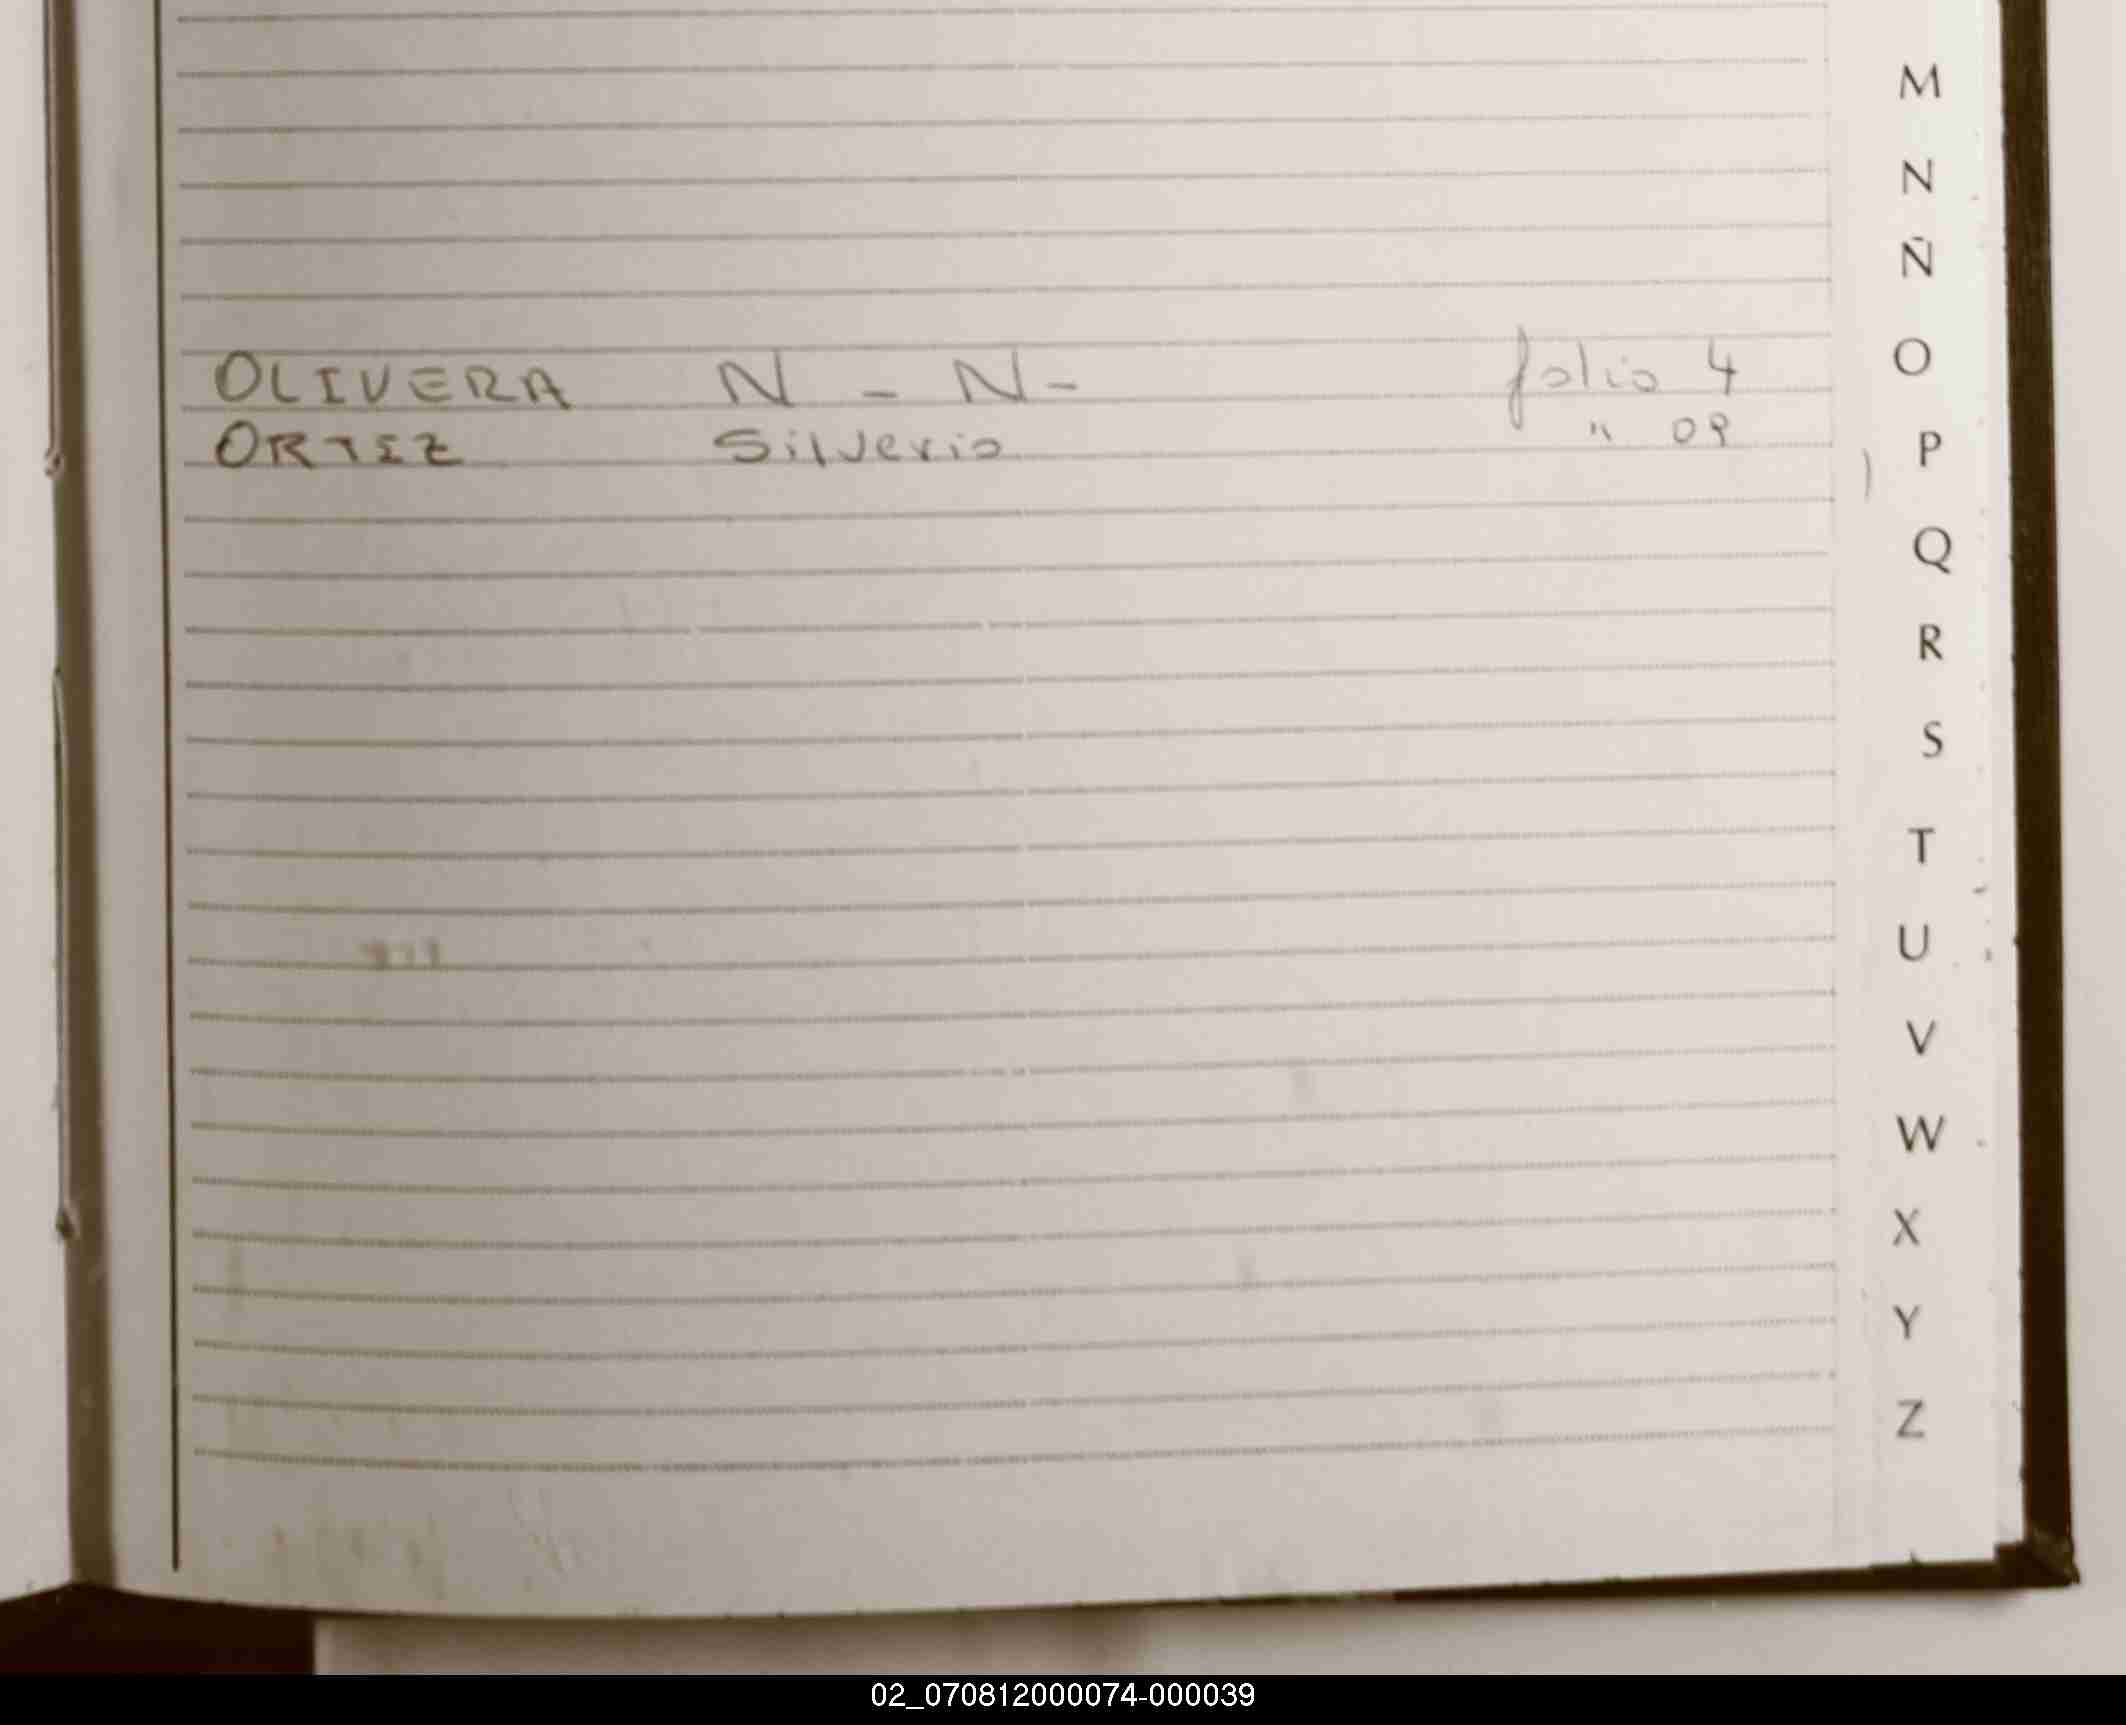 OLIVERA N - N - folio 4
ORTIZ Silverio " 09
M
N
Ñ
O
P
Q
R
S
T
U
V
W
X
Y
Z
02_070812000074-000039